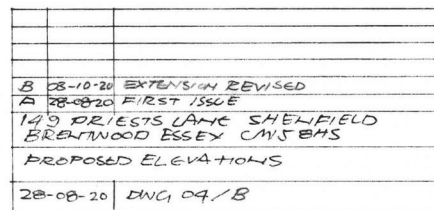 B 08-10-20 EXTENSION REVISED
A 28-08-20 FIRST ISSUE
149 PRIESTS LANE SHENFIELD
BRENTWOOD ESSEX CM15 8HS
PROPOSED ELEVATIONS
28-08-20 DWG 04/B